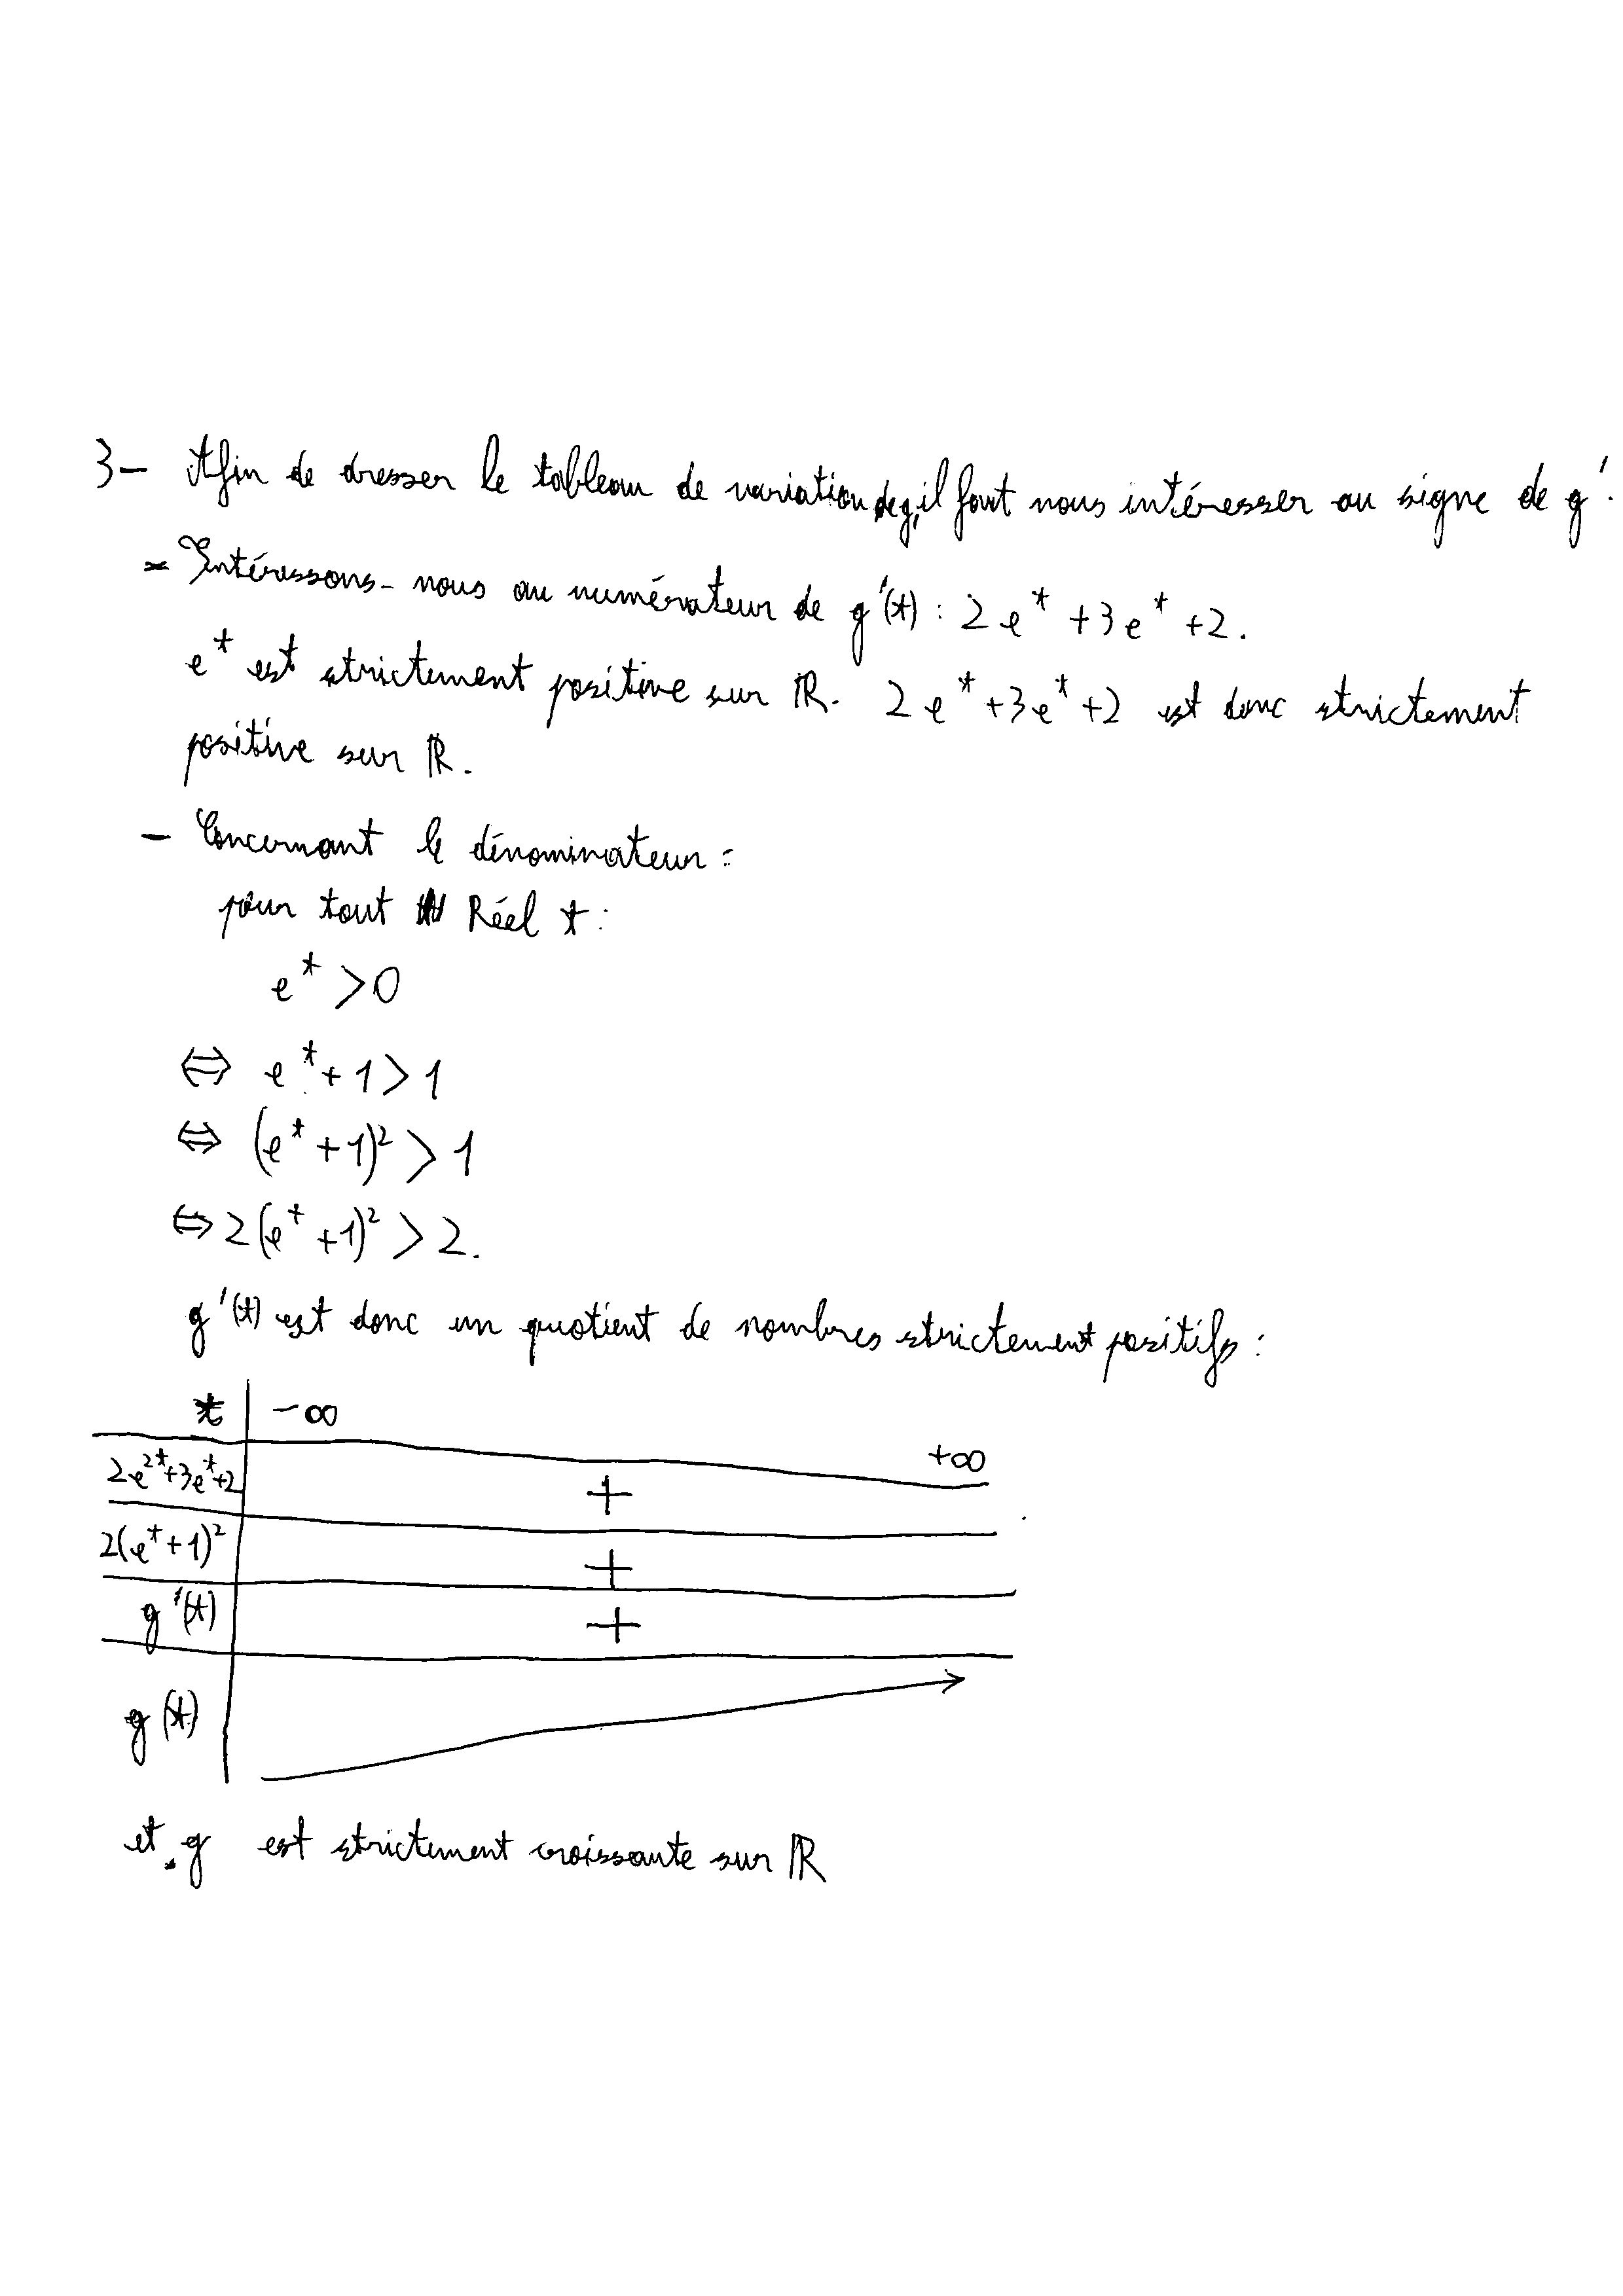 3- Afin de dresser le tableau de variation de g, il faut nous intéresser au signe de g'.
- Intéressons-nous au numérateur de g'(t) : 2e^t + 3e^t + 2.
e^t est strictement positive sur ℝ. 2e^t + 3e^t + 2 est donc strictement
positive sur ℝ.
- Concernant le dénominateur :
pour tout Réel t :
e^t > 0
⇔ e^t + 1 > 1
⇔ (e^t + 1)² > 1
⇔ 2(e^t + 1)² > 2.
g'(t) est donc un quotient de nombres strictement positifs :
t | -∞ +∞
2e^2t + 3e^t + 2 | +
2(e^t + 1)² | +
g'(t) | +
g(t)
et g est strictement croissante sur ℝ